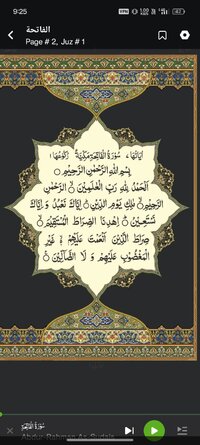 9:25
الفاتحة
Page # 2, Juz # 1
بِسْمِ اللّٰهِ الرَّحْمٰنِ الرَّحِيْمِ
اَلْحَمْدُ لِلّٰهِ رَبِّ الْعٰلَمِيْنَ الرَّحْمٰنِ
الرَّحِيْمِ مٰلِكِ يَوْمِ الدِّيْنِ اِيَّاكَ نَعْبُدُ وَ اِيَّاكَ
نَسْتَعِيْنُ اِهْدِنَا الصِّرَاطَ الْمُسْتَقِيْمَ
صِرَاطَ الَّذِيْنَ اَنْعَمْتَ عَلَيْهِمْ غَيْرِ
الْمَغْضُوْبِ عَلَيْهِمْ وَ لَا الضَّآلِّيْنَ
Abdur-Rahman As-Sudais